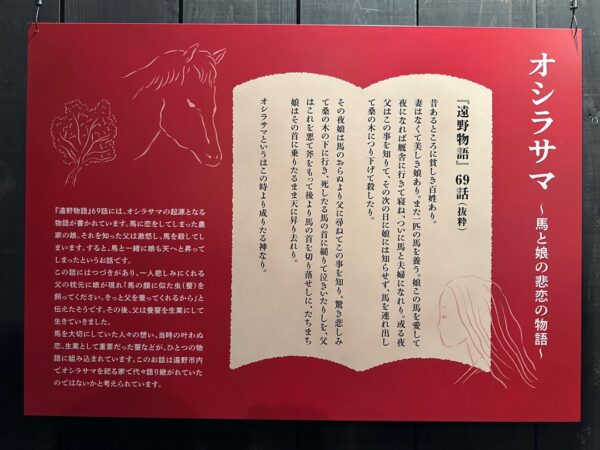 オシラサマ ～馬と娘の悲恋の物語～
『遠野物語』69話（抜粋）
昔あるところに貧しき百姓あり。
妻はなくて美しき娘あり。また一匹の馬を養う。娘この馬を愛して
夜になれば厩舎に行きて寝ね、ついに馬と夫婦になれり。或る夜
父はこの事を知りて、その次の日に娘には知らせず、馬を連れ出し
て桑の木につり下げて殺したり。
その夜娘は馬のおらぬより父に尋ねてこの事を知り、驚き悲しみ
て桑の木の下に行き、死したる馬の首に縋りて泣きいたりしを、父
はこれを悪て斧をもって後より馬の首を切り落せしに、たちまち
娘はその首に乗りたるまま天に昇り去れり。
オシラサマというはこの時より成りたる神なり。
『遠野物語』69話には、オシラサマの起源となる
物語が書かれています。馬に恋をしてしまった農
家の娘。それを知った父は激怒し、馬を殺してし
まいます。すると、馬と一緒に娘も天へと昇って
しまったというお話です。
この話にはつづきがあり、一人悲しみにくれる
父の枕元に娘が現れ「馬の顔に似た虫（蚕）を
飼ってください。きっと父を養ってくれるから」と
伝えたそうです。その後、父は養蚕を生業にして
生きていきました。
馬を大切にしていた人々の想い、当時の叶わぬ
恋、生業として重要だった蚕などが、ひとつの物
語に組み込まれています。このお話は遠野市内
でオシラサマを祀る家で代々語り継がれていた
のではないかと考えられています。